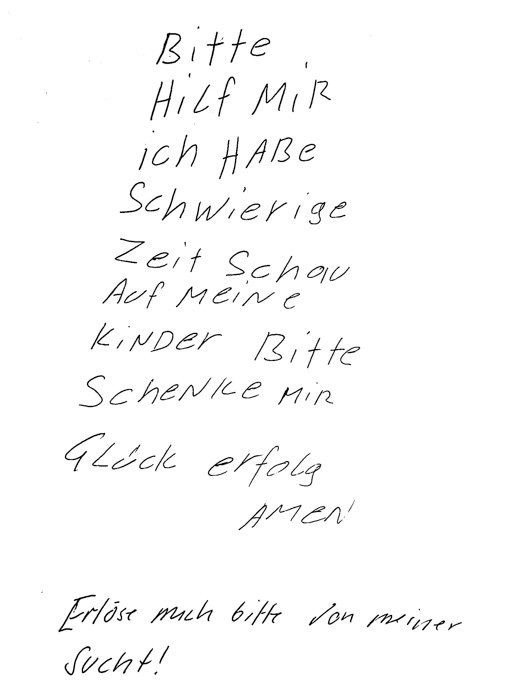 Bitte
Hilf MiR
ich HABe
Schwierige
Zeit Schau
Auf Meine
KiNDER Bitte
SCHENKE MIR
GLück erfolg
AMEN
Erlöse mich bitte von meiner
Sucht!